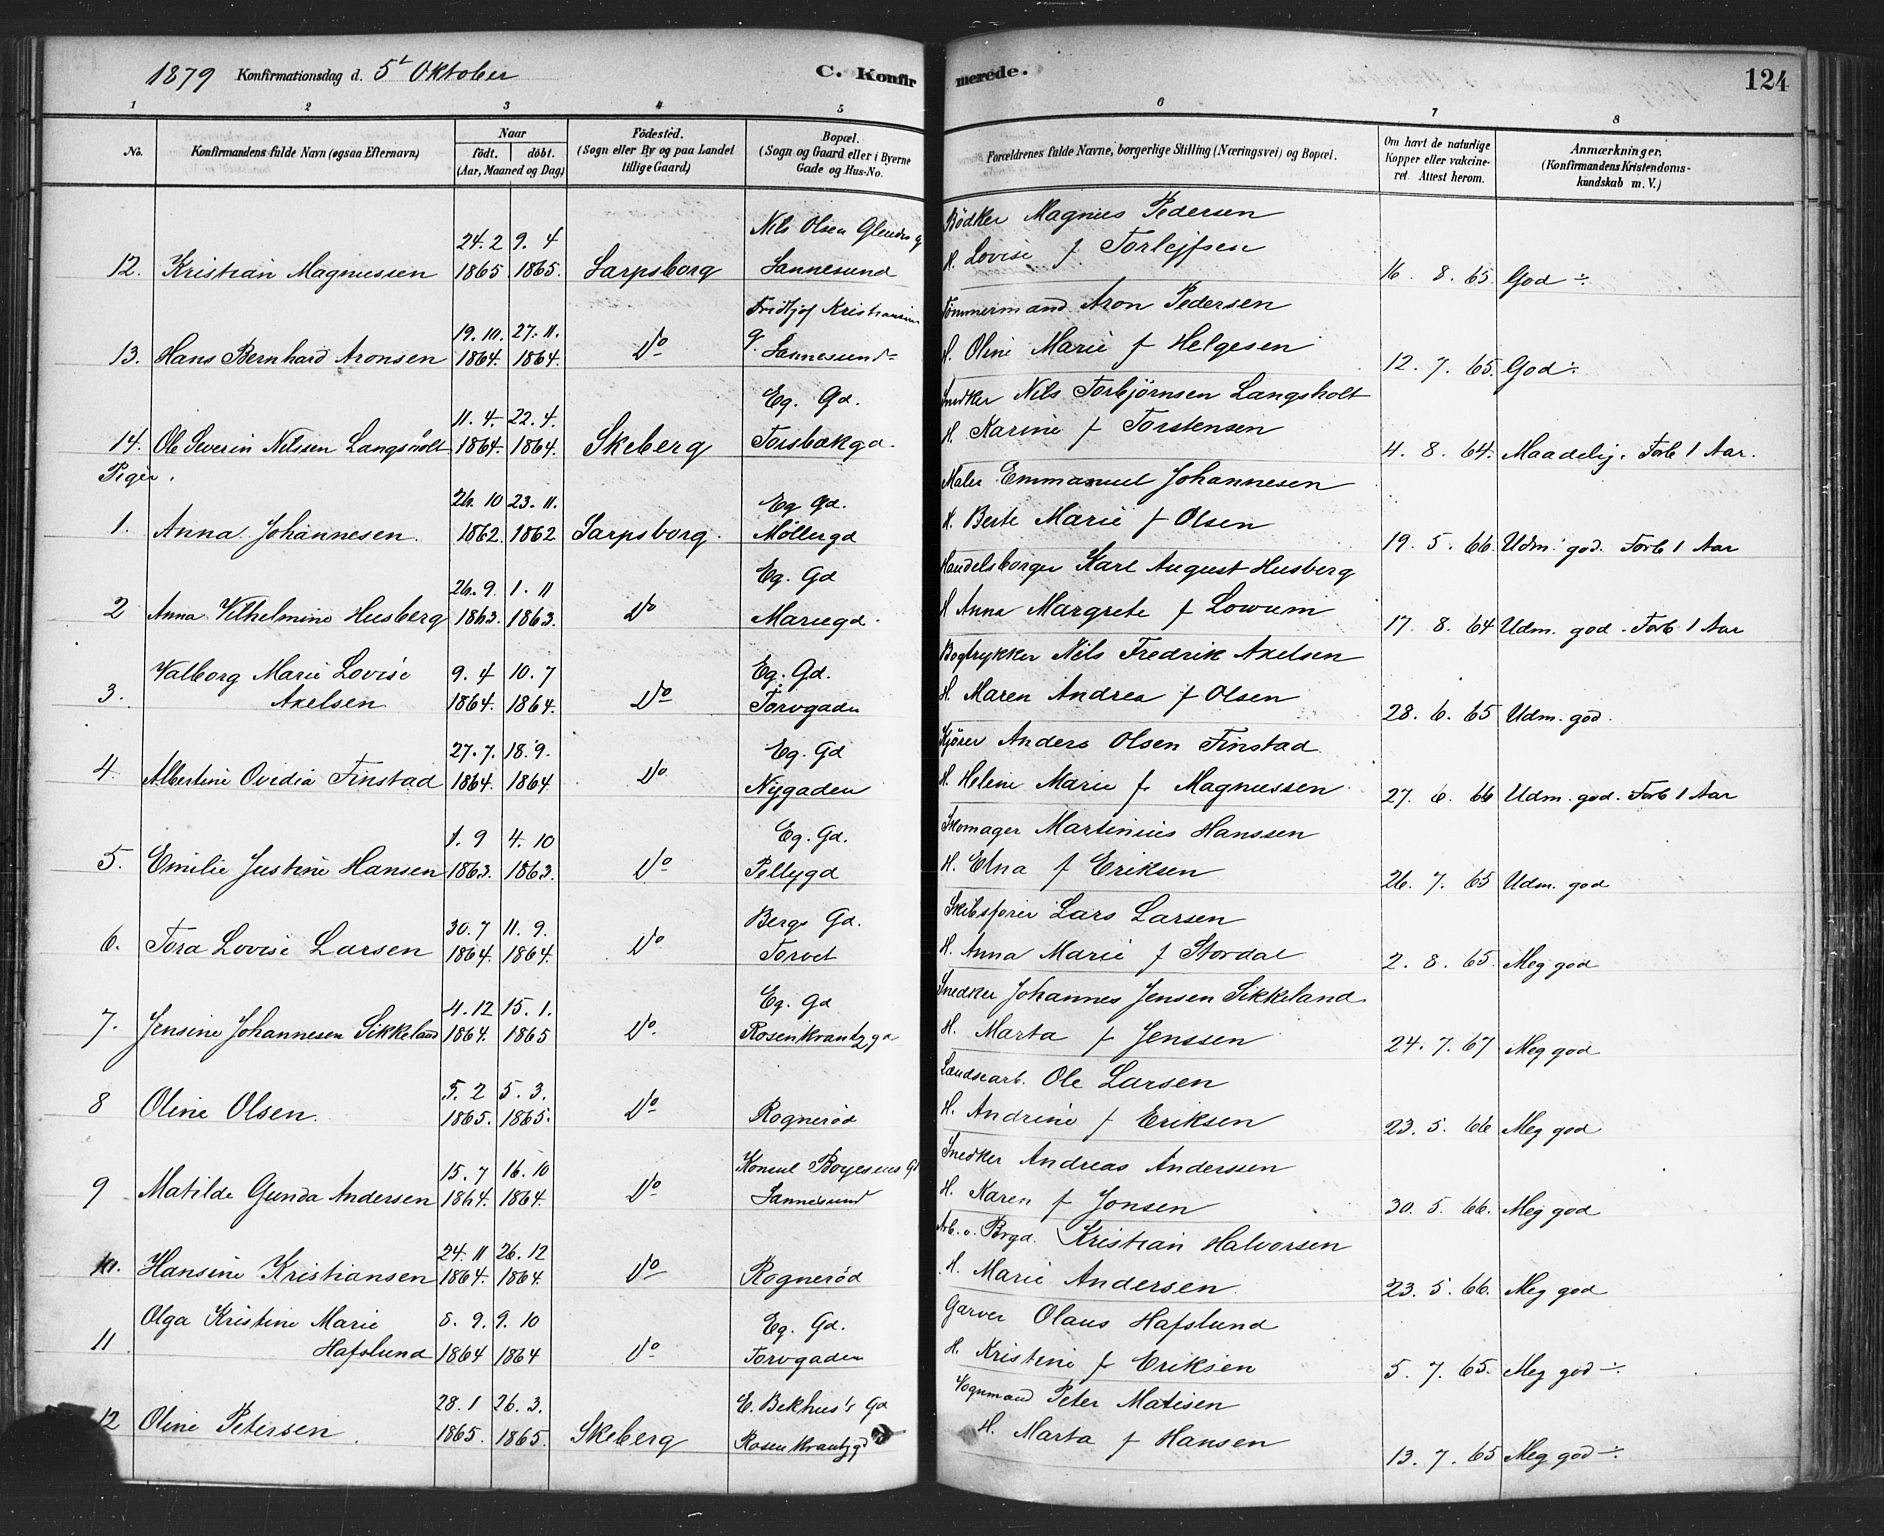 1879 Konfirmationsdag d. 5t Oktober C. Konfirmerede. 124
1 2 3 4 5 6 7 8
No. Konfirmandens fulde Navn (ogsaa Efternavn) Naar født. døbt. (Aar, Maaned og Dag) Födested. (Sogn eller By og paa Landet tillige Gaard) Bopæl. (Sogn og Gaard eller i Byerne Gade og Hus-No. Forældrenes fulde Navne, borgerlige Stilling (Næringsvei) og Bopæl. Om havt de naturlige Kopper eller vakcineret. Attest herom. Anmærkninger. (Konfirmandens Kristendomskundskab m. V.)
24. 2 9. 4 Nils Olsen Glendes g Bødker Magnus Pedersen
12. Kristian Magnussen 1865 1865. Sarpsborg Sannesund H. Lovise f Torlejfsen 16. 8. 65 God ÷
19. 10. 27. 11. Fridtjof Kristiansens Tømmermand Aron Pedersen
13. Hans Bernhard Aronsen 1864. 1864. Do g. Sannesund H. Oline Marie f Helgesen 12. 7. 65. God ÷
11. 4. 22. 4. Eg. Gd. Snedker Nils Torbjörnsen Langsholt
14. Ole Severin Nilssen Langsholt 1864. 1864. Skeberg Torsbækgd. H. Karine f Torstensen 4. 8. 64. Maadelig. Forb 1 Aar.
Piger.
26. 10 23. 11. Eg Gd. Maler Emmanuel Johannesen
1. Anna Johannesen. 1862. 1862 Sarpsborg. Møllergd H. Berte Marie f Olsen 19. 5. 66. Udm. god. Forb 1 Aar
26. 9. 1. 11 Eg. Gd Handelsborger Karl August Husberg
2 Anna Vilhelmine Husberg 1863. 1863. Do Mariegd. H Anna Margrete f Lowum 17. 8. 64 Udm. god. Forb 1 Aar
Valborg Marie Lovise 9. 4 10. 7 Eg. Gd. Bogtrykker Nils Fredrik Axelsen
3. Axelsen 1864. 1864. Do Torvgaden H. Maren Andrea f Olsen 28. 6. 65 Udm. god.
27. 7. 18. 9. Eg. Gd Kjører Anders Olsen Finstad
4. Albertine Ovidia Finstad 1864. 1864 Do Nygaden H. Helene Marie f. Magnussen 27. 6. 66 Udm. god. Forb 1 Aar
1. 9 4. 10 Eg. Gd. Skomager Martinius Hanssen
5. Emilie Justine Hansen 1863. 1863. Do Pellygd H. Elna f Eriksen 26. 7. 65 Udm. god
30. 7 11. 9. Bergs Gd. Skibsfører Lars Larsen
6. Tora Lovise Larsen 1864. 1864. Do Torvet H. Anna Marie f Stordal 2. 8. 65. Meg god
4. 12 15. 1. Eg. Gd Snedker Johannes Jensen Sikkeland
7. Jensine Johannesen Sikkeland 1864. 1865 Do. Rosenkrantzgd H. Marta f Jenssen 24. 7. 67 Meg god
5. 2 5. 3. Landsearb. Ole Larsen
8 Oline Olsen. 1865. 1865. Do Rognerød H. Andrine f Eriksen 23. 5. 66 Meg god
15. 7 16. 10 Konsul Boyesens Gd Snedker Andreas Anderssen
9 Matilde Gunda Andersen 1864. 1864. Do Sannesund H. Karen f Jonsen 30. 5. 66. Meg god
24. 11 26. 12 Arb. v. Brgd. Kristian Halvorsen
10. Hansine Kristiansen 1864. 1864 Do Rognerød H. Marie Andersen 23. 5. 66. Meg god
Olga Kristine Marie 8. 9. 9. 10 Eg. Gd. Garver Olaus Hafslund
11 Hafslund 1864 1864 Do Torvgaden H. Kristine f Eriksen 5. 7. 65. Meg god ÷
28. 1 26. 3. E. Bekhus's Gd Vognmand Peter Matisen
12 Oline Petersen. 1865. 1865. Skeberg Rosenkrantzgd H. Marta f Hansen 13. 7. 65 Meg god ÷